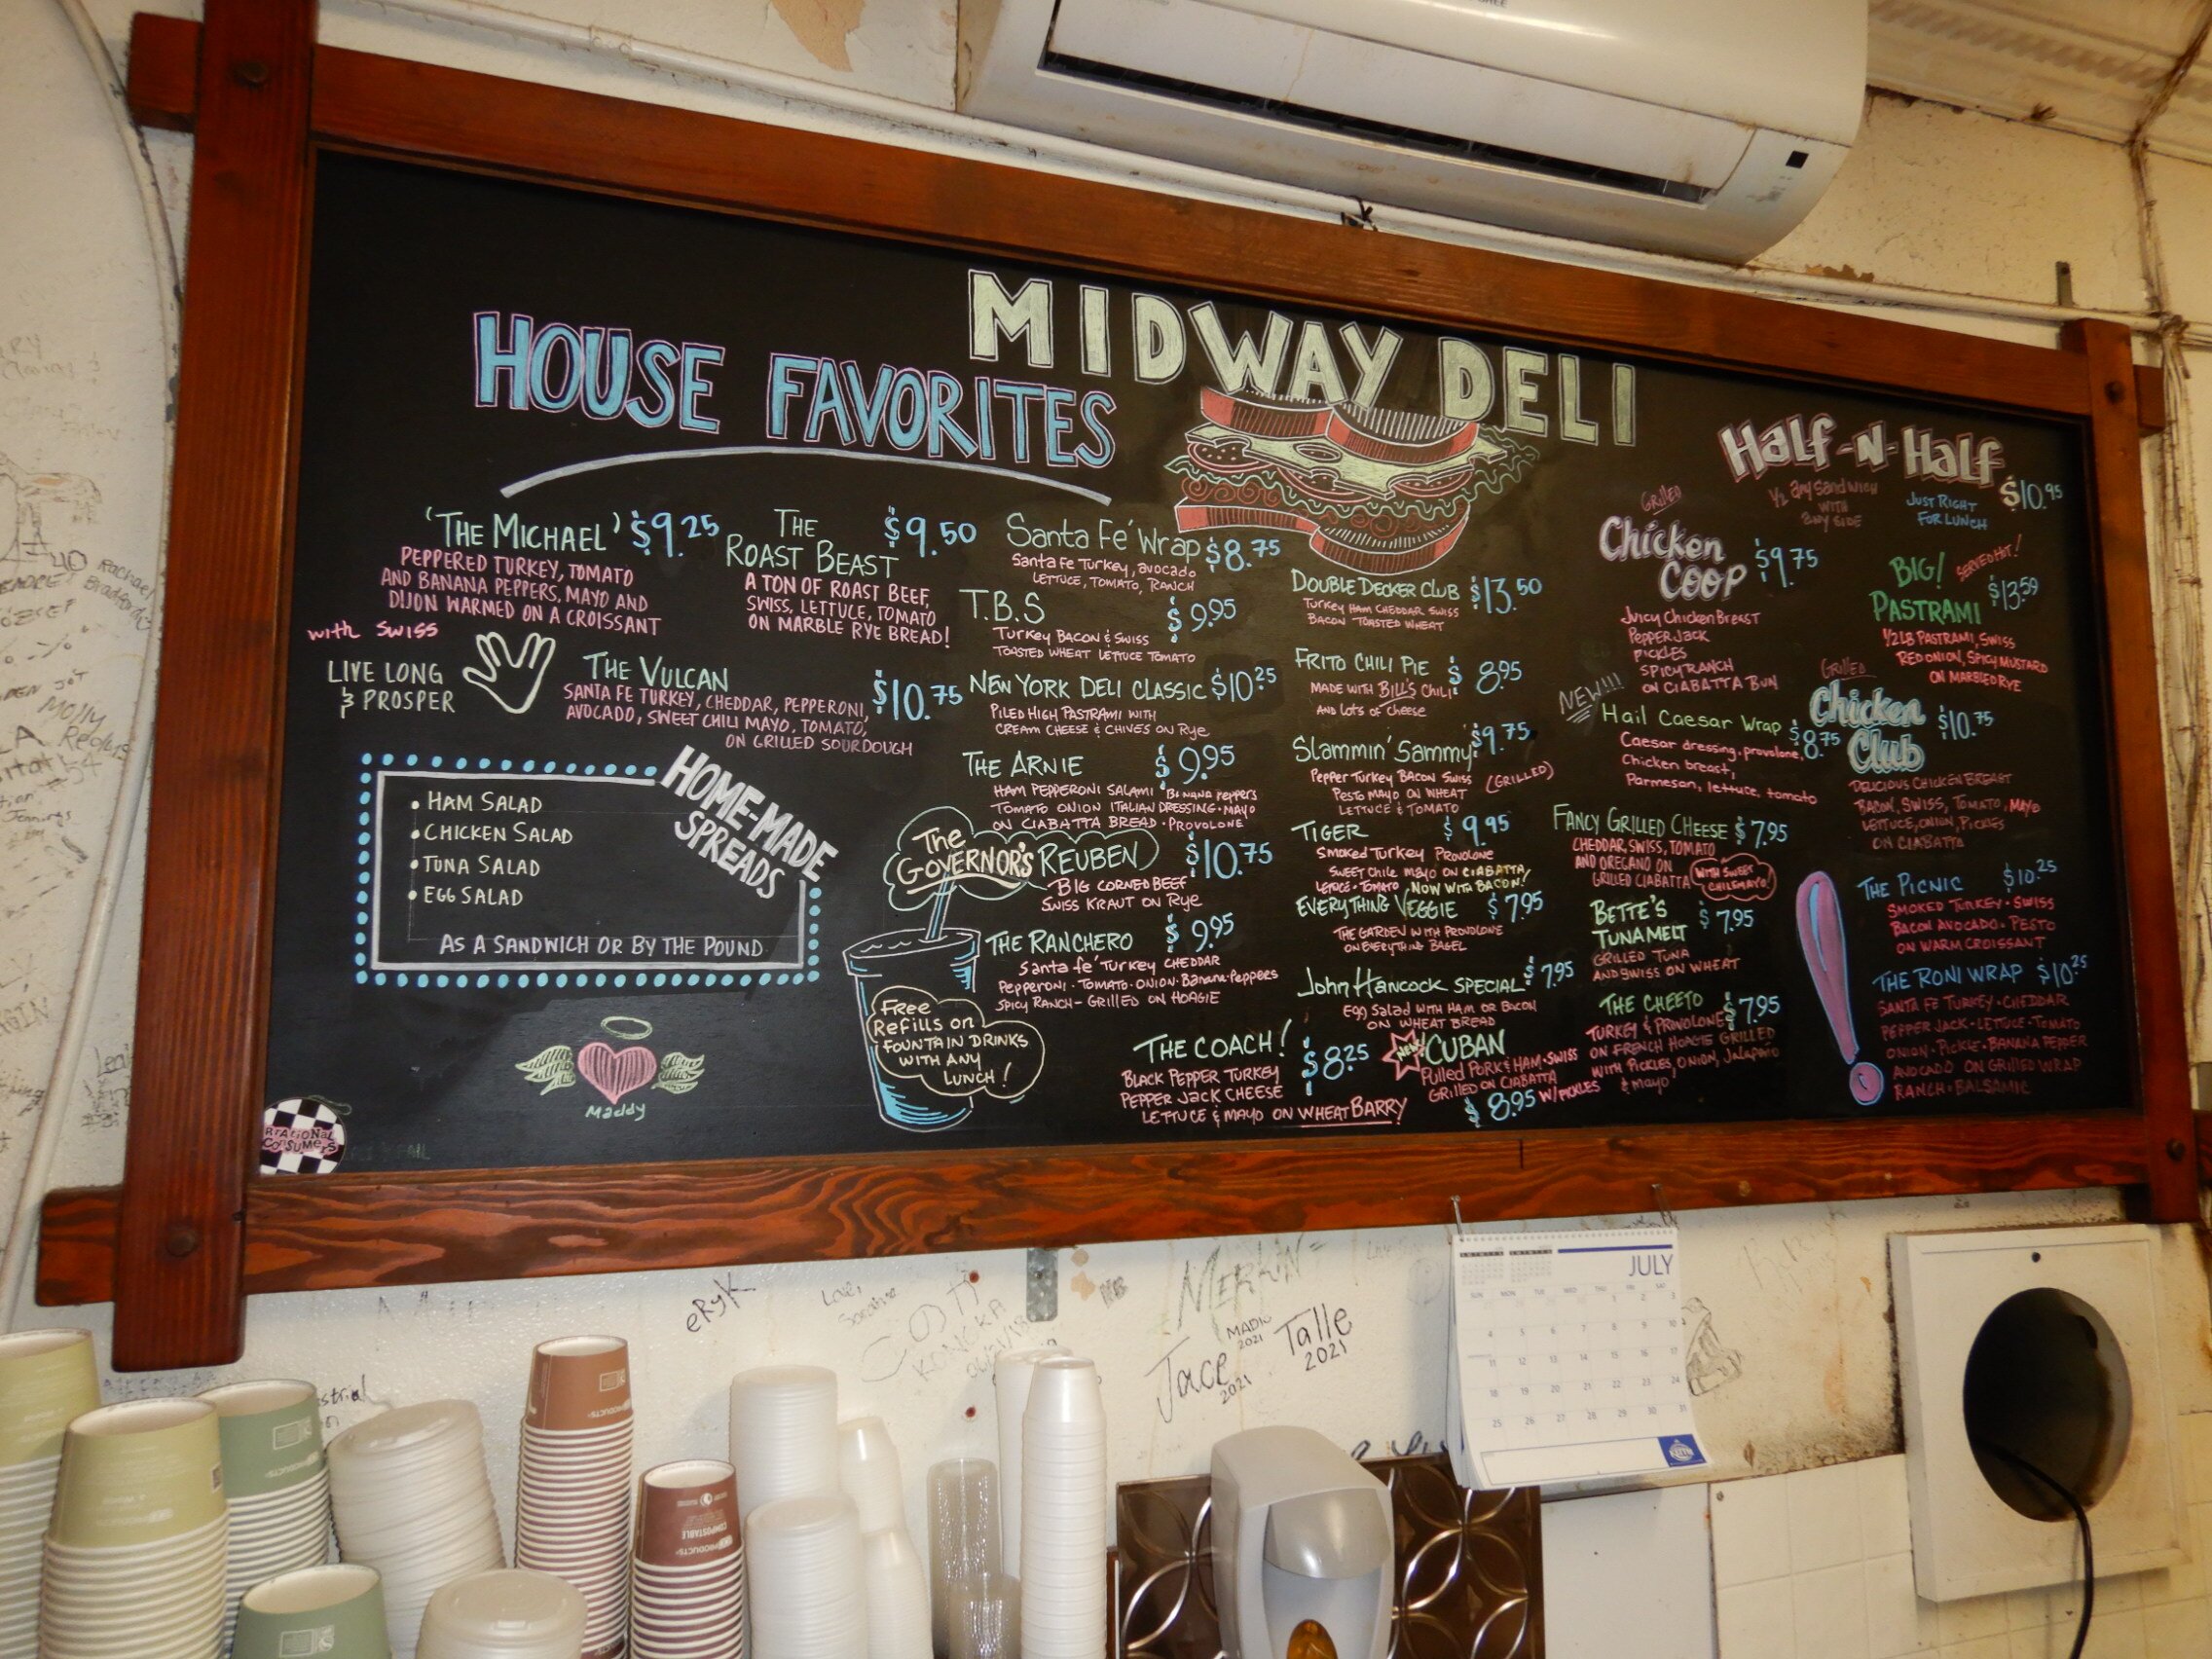 MIDWAY DELI
HOUSE FAVORITES
'THE MICHAEL' $9.25
PEPPERED TURKEY, TOMATO
AND BANANA PEPPERS, MAYO AND
DIJON WARMED ON A CROISSANT
with SWISS
THE
ROAST BEAST $9.50
A TON OF ROAST BEEF,
SWISS, LETTUCE, TOMATO
ON MARBLE RYE BREAD!
LIVE LONG
& PROSPER
THE VULCAN $10.75
SANTA FE TURKEY, CHEDDAR, PEPPERONI,
AVOCADO, SWEET CHILI MAYO, TOMATO,
ON GRILLED SOURDOUGH
HOME-MADE
SPREADS
• HAM SALAD
• CHICKEN SALAD
• TUNA SALAD
• EGG SALAD
AS A SANDWICH OR BY THE POUND
Maddy
RATIONAL
CONSUMERS
Santa Fé Wrap $8.75
Santa Fe Turkey, avocado
LETTUCE, TOMATO, RANCH
T.B.S $9.95
TURKEY BACON & SWISS
TOASTED WHEAT LETTUCE TOMATO
NEW YORK DELI CLASSIC $10.25
PILED HIGH PASTRAMI WITH
CREAM CHEESE & CHIVES ON Rye
THE ARNIE $9.95
HAM PEPPERONI SALAMI Banana peppers
TOMATO ONION ITALIAN DRESSING • MAYO
ON CIABATTA BREAD • PROVOLONE
The
GOVERNOR'S REUBEN $10.75
BIG CORNED BEEF
SWISS KRAUT ON Rye
THE RANCHERO $9.95
Santa fe' Turkey CHEDDAR
Pepperoni • TOMATO • ONION • Banana Peppers
SPICY RANCH - GRILLED ON HOAGIE
Free
Refills on
FOUNTAIN DRINKS
WITH ANY
LUNCH!
THE COACH! $8.25
BLACK PEPPER TURKEY
PEPPER JACK CHEESE
LETTUCE & MAYO ON WHEATBARRY
DOUBLE DECKER CLUB $13.50
TURKEY HAM CHEDDAR SWISS
BACON TOASTED WHEAT
FRITO CHILI PIE $8.95
MADE WITH BILL'S CHILI
AND LOTS OF CHEESE
Slammin' Sammy $9.75
Pepper Turkey BACON SWISS (GRILLED)
PESTO MAYO ON WHEAT
LETTUCE & TOMATO
TIGER $9.95
SMOKED TURKEY PROVOLONE
SWEET CHILE MAYO ON CIABATTA
LETTUCE • TOMATO NOW WITH BACON!
EVERYTHING VEGGIE $7.95
THE GARDEN WITH PROVOLONE
ON EVERYTHING BAGEL
John Hancock SPECIAL $7.95
Egg Salad WITH HAM OR BACON
ON WHEAT BREAD
NEW! CUBAN
Pulled PORK & HAM • SWISS
GRILLED ON CIABATTA
$8.95 W/PICKLES
Half-N-Half
$10.95
1/2 any sandwich
WITH
any SIDE
JUST RIGHT
FOR LUNCH
GRILLED
Chicken
COOP $9.75
JUICY CHICKEN BREAST
PEPPER JACK
PICKLES
SPICY RANCH
ON CIABATTA BUN
NEW!!!
Hail Caesar Wrap $8.75
Caesar dressing, provolone,
Chicken breast,
Parmesan, lettuce, tomato
FANCY GRILLED CHEESE $7.95
CHEDDAR, SWISS, TOMATO
AND OREGANO ON
GRILLED CIABATTA
WITH SWEET
CHILE MAYO!
BETTE'S
TUNA MELT $7.95
GRILLED TUNA
AND SWISS ON WHEAT
THE CHEETO $7.95
TURKEY & PROVOLONE
ON FRENCH HOAGIE GRILLED
WITH PICKLES, ONION, Jalapaño
& mayo
BIG! SERVED HOT!
PASTRAMI $13.59
1/2 LB PASTRAMI, SWISS
RED ONION, SPICY MUSTARD
ON MARBLED RYE
GRILLED
Chicken
Club $10.75
DELICIOUS CHICKEN BREAST
BACON, SWISS, TOMATO, MAYO
LETTUCE, ONION, PICKLES
ON CIABATTA
THE PICNIC $10.25
SMOKED TURKEY • SWISS
BACON AVOCADO • PESTO
ON WARM CROISSANT
THE RONI WRAP $10.25
SANTA FE TURKEY • CHEDDAR
PEPPER JACK • LETTUCE • TOMATO
ONION • PICKLE • BANANA PEPPER
AVOCADO ON GRILLED WRAP
RANCH • BALSAMIC
eRyK
Love,
MERLIN
Jace
2021
MADIN
2021
Talle
2021
JULY
SUN MON TUE WED THU FRI SAT
1 2 3
4 5 6 7 8 9 10
11 12 13 14 15 16 17
18 19 20 21 22 23 24
25 26 27 28 29 30 31
COMPOSTABLE